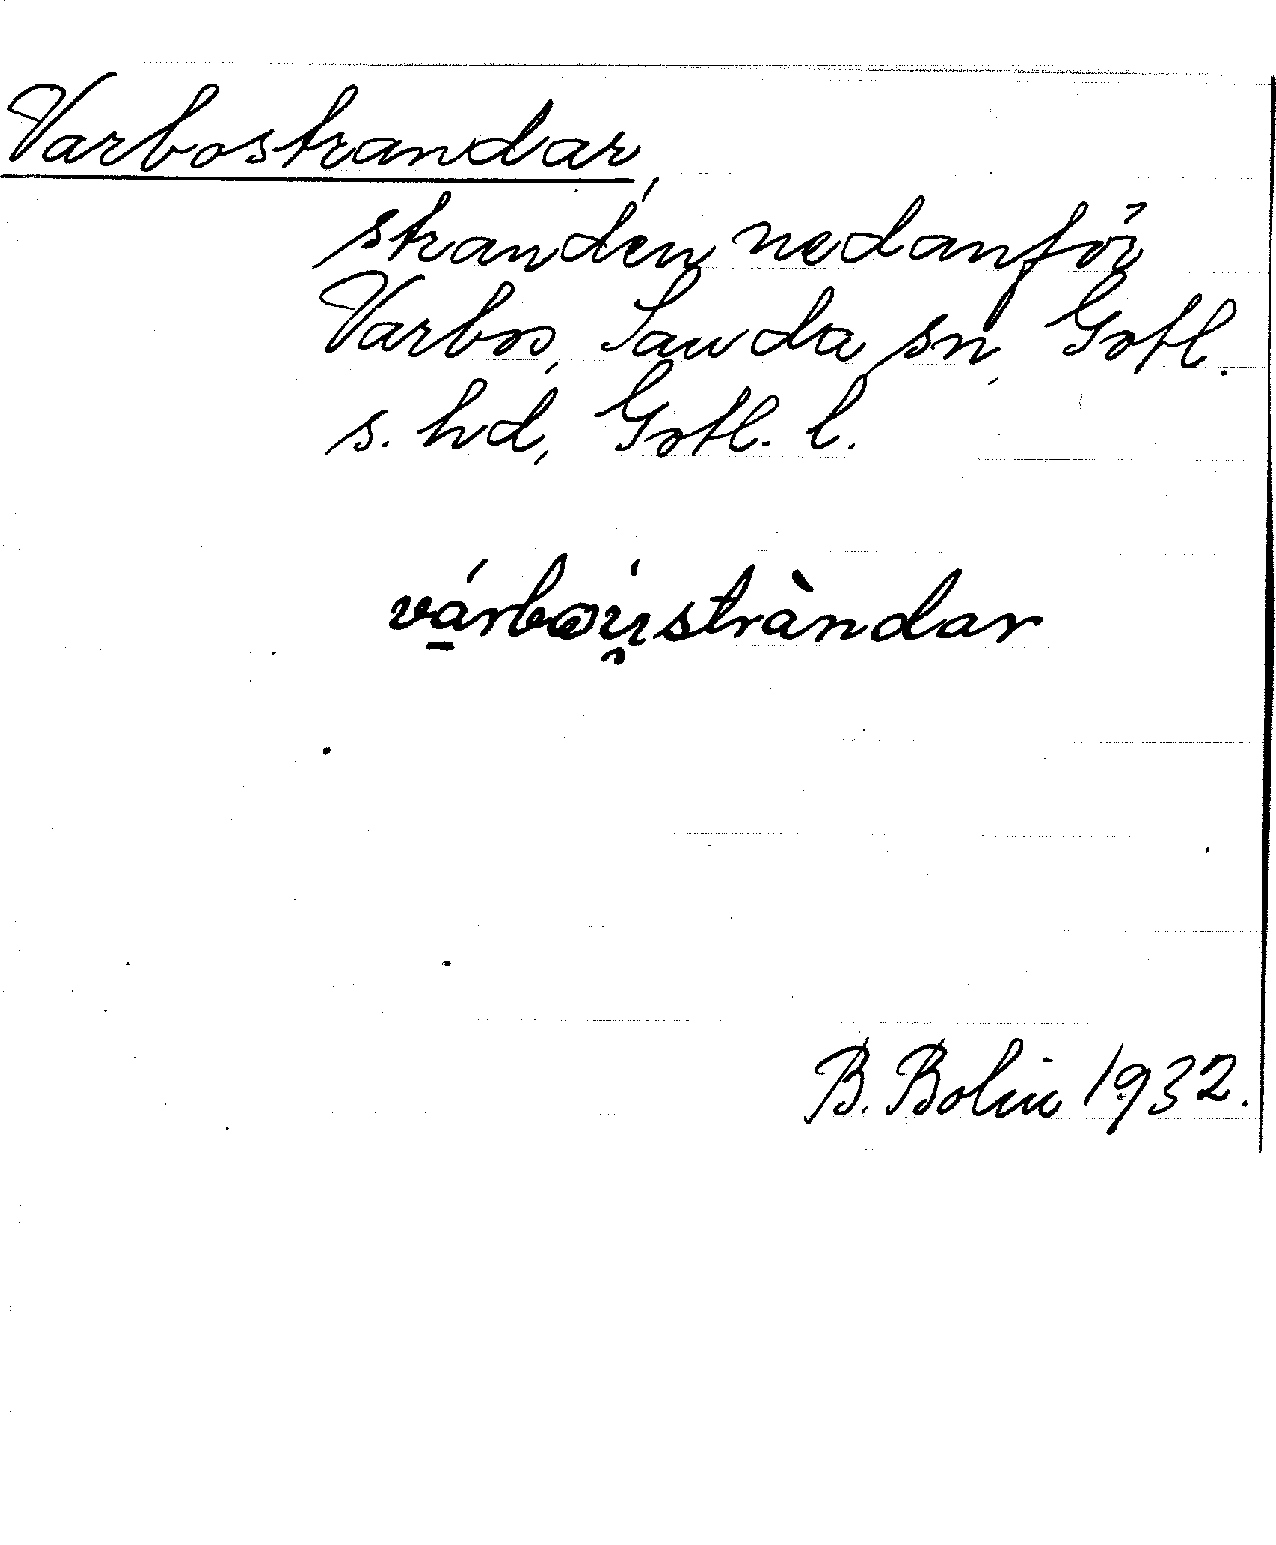 Varbostrandar,
stranden nedanför
Varbos, Sanda sn, Gotl.
s. hd, Gotl. l.
várboustràndar
B. Bolin 1932.